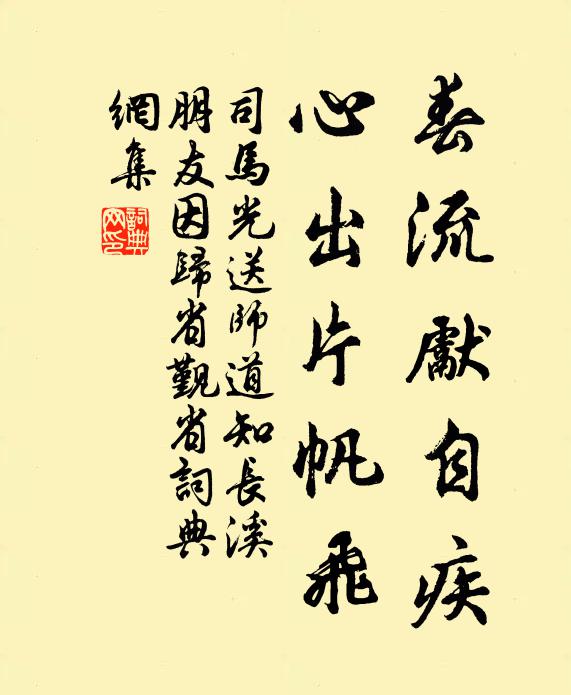 春流獻自疾
心出片帆飛
司馬光送師道知長溪
朋友因歸省觀省詞典
網集
詞典
网印